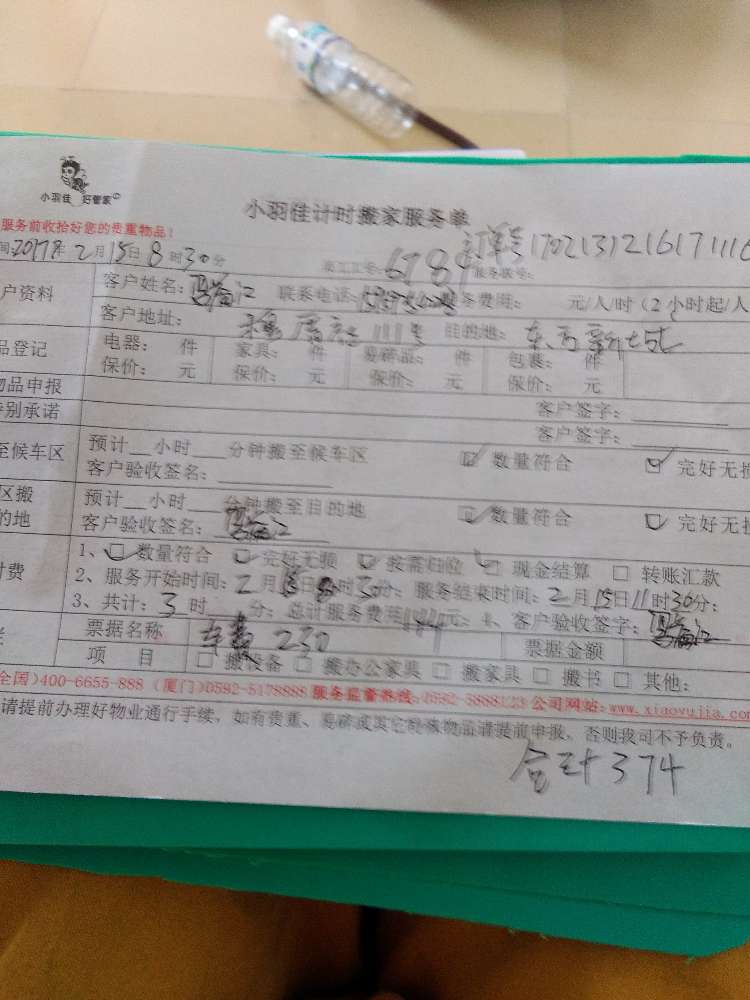 小羽佳 好管家
小羽佳计时搬家服务单
服务前收拾好您的贵重物品!
订单号 17021312161711116
间:2017年2月15日8时30分 员工工号:6789 服务账号:
户资料 客户姓名: 联系电话: 务费用: 元/人/时(2小时起/人
客户地址: 111号 目的地:东方新城
品登记 电器: 件 家具: 件 易碎品: 件 包裹: 件
物品申报 保价: 元 保价: 元 保价: 元 保价: 元
特别承诺 客户签字:
客户签字:
至候车区 预计__小时__分钟搬至候车区 数量符合 完好无损
客户验收签名:
区搬 预计__小时__分钟搬至目的地 数量符合 完好无损
的地 客户验收签名:
付费 1、数量符合 完好无损 按需归位 现金结算 转账汇款
2、服务开始时间:2月15日8时30分;服务结束时间:2月15日11时30分;
3、共计:3时 分;总计服务费用144元;4、客户验收签字:
票据名称 车费 230 票据金额
项 目 搬设备 搬办公家具 搬家具 搬书 其他:
全国)400-6655-888 (厦门)0592-5178888 服务监督热线: 公司网站:www.xiaoyujia.com
请提前办理好物业通行手续,如有贵重、易碎或其它特殊物品请提前申报,否则我司不予负责。
合计374